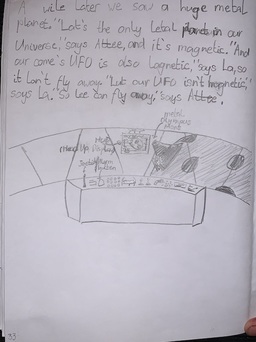 A wile Later we saw a huge metal
planet. "Lat's the only Letal in our
Universe," says Attee, and it's magnetic. "And
our came's UFO is also Lagnetic," says La, so
it Lan't fly away. "Lut our UFO isn't magnetic,"
says La. "So Lee Can fly away," says Attee.
metal
planet
33